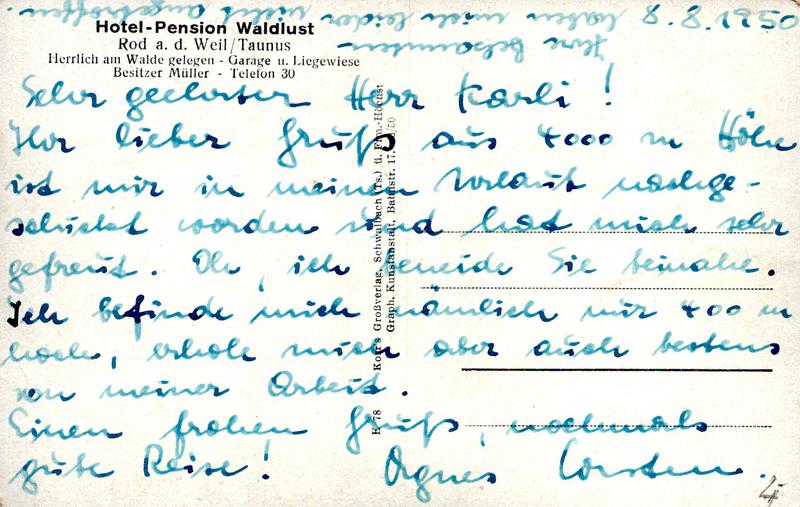 8.8.1950
Hotel-Pension Waldlust
Rod a. d. Weil/Taunus
Herrlich am Walde gelegen - Garage u. Liegewiese
Besitzer Müller - Telefon 30
Sehr geehrter Herr Karli!
Ihr lieber Gruß aus 4000 m Höhe
ist mir in meinen Urlaub nachge-
schickt worden und hat mich sehr
gefreut. Oh, ich beneide Sie beinahe.
Ich befinde mich nämlich nur 400 m
hoch, erhole mich aber auch bestens
von meiner Arbeit.
Einen frohen Gruß, nochmals
gute Reise! Agnes Corsten.
Ihre Bekannten
haben mich leider nicht angetroffen.
E 78 Korr's Großverlag, Schwalbach (Ts.) u. Ffm.-Höchst
Graph. Kunstanstalt, Bahnstr. 17.